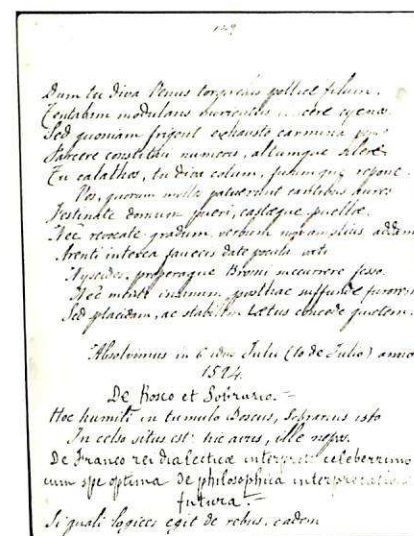 Dum tu diva Venus torquebis pollice filum.
Tentabim modulans cere cycnos
Sed quoniam frigent exhausto carmina
Parcere constitui numeris, altumque silere
Tu calathos, tu diva colum, fusumque repone.
Vos, quorum mollia patuerunt cantibus aures
Festinate domum pueri, castaeque puellae.
Nec revocate gradum, verbum non amplius addam
Arenti interea fauces date pocula
Nyseides, properaque Bromi succurrere fesso.
Nec mihi insanum posthac suffunde furorem
Sed placidam, ac stabilem laetus concede quietem.
Absolvimus in 6 idus Julii (10 de Julio) anno
1514.
De Bosco et Sobrario.=
Hoc humili in tumulo Boscus, Sobrarius isto
In celso situs est: hic avus, ille nepos.
De Franco rei dialecticae interprete celeberrimo
cum spe optima de philosophica interpretatione
futura.=
Si quali logices egit de rebus, eadem